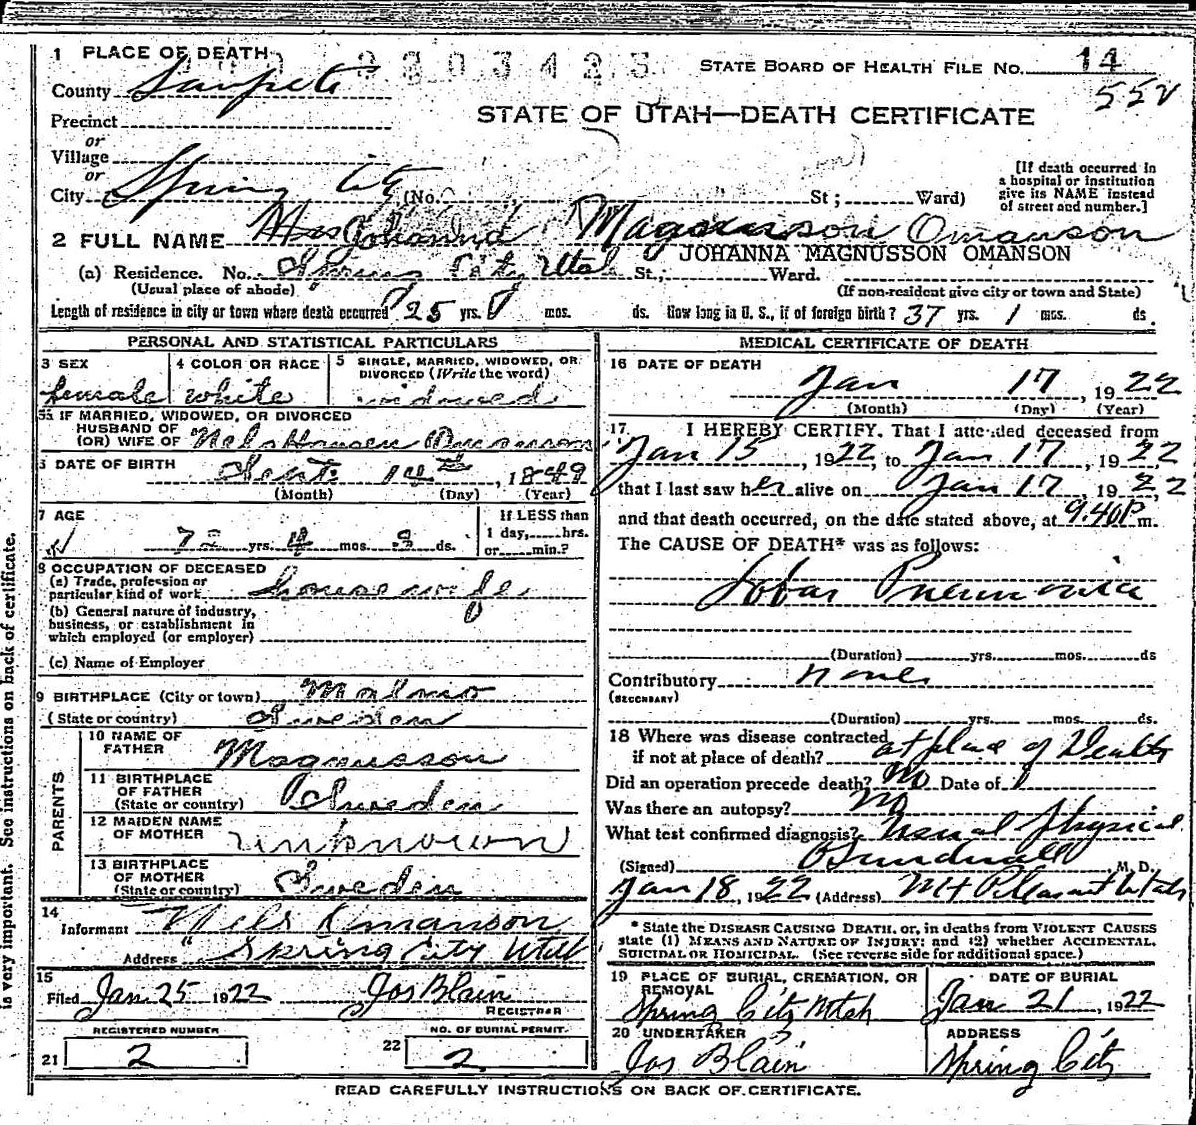 1 PLACE OF DEATH
STATE BOARD OF HEALTH FILE No. 14
County Sanpete
552
STATE OF UTAH—DEATH CERTIFICATE
Precinct
or
Village
or
City Spring City (No. St; Ward)
[If death occurred in
a hospital or institution
give its NAME instead
of street and number.]
2 FULL NAME Mrs Johanna Magnusson Omanson
JOHANNA MAGNUSSON OMANSON
(a) Residence. No. Spring City Utah St; Ward.
(Usual place of abode) (If non-resident give city or town and State)
Length of residence in city or town where death occurred 25 yrs. mos. ds. How long in U. S., if of foreign birth? 37 yrs. 1 mos. ds.
PERSONAL AND STATISTICAL PARTICULARS
3 SEX
female
4 COLOR OR RACE
white
5 SINGLE, MARRIED, WIDOWED, OR
DIVORCED (Write the word)
widowed
5a IF MARRIED, WIDOWED, OR DIVORCED
HUSBAND OF
(OR) WIFE OF Nels Hansen
6 DATE OF BIRTH Sept. 14th, 1849
(Month) (Day) (Year)
7 AGE
72 yrs. 4 mos. 3 ds.
If LESS than
1 day, hrs.
or min.?
8 OCCUPATION OF DECEASED
(a) Trade, profession or
particular kind of work housewife
(b) General nature of industry,
business, or establishment in
which employed (or employer)
(c) Name of Employer
9 BIRTHPLACE (City or town) Malmo
(State or country) Sweden
PARENTS
10 NAME OF
FATHER Magnusson
11 BIRTHPLACE
OF FATHER
(State or country) Sweden
12 MAIDEN NAME
OF MOTHER unknown
13 BIRTHPLACE
OF MOTHER
(State or country) Sweden
14
Informant Nils Omanson
Address Spring City Utah
15
Filed Jan 25 1922 Jos Blain
REGISTRAR
REGISTERED NUMBER
21 2
NO. OF BURIAL PERMIT.
22 2
MEDICAL CERTIFICATE OF DEATH
16 DATE OF DEATH
Jan 17, 1922
(Month) (Day) (Year)
17 I HEREBY CERTIFY, That I attended deceased from
Jan 15, 1922, to Jan 17, 1922
that I last saw her alive on Jan 17, 1922
and that death occurred, on the date stated above, at 9.40P m.
The CAUSE OF DEATH* was as follows:
Lobar Pneumonia
(Duration) yrs. mos. ds
Contributory none
(SECONDARY)
(Duration) yrs. mos. ds.
18 Where was disease contracted
if not at place of death? at place of Death
Did an operation precede death? No Date of
Was there an autopsy? No
What test confirmed diagnosis? Usual physical
(Signed) O Sundwall M. D.
Jan 18, 1922 (Address) Mt Pleasant Utah
* State the DISEASE CAUSING DEATH, or, in deaths from VIOLENT CAUSES
state (1) MEANS AND NATURE OF INJURY; and (2) whether ACCIDENTAL,
SUICIDAL OR HOMICIDAL. (See reverse side for additional space.)
19 PLACE OF BURIAL, CREMATION, OR
REMOVAL
Spring City Utah
DATE OF BURIAL
Jan 21, 1922
20 UNDERTAKER
Jos Blain
ADDRESS
Spring City
READ CAREFULLY INSTRUCTIONS ON BACK OF CERTIFICATE.
is very important. See instructions on back of certificate.